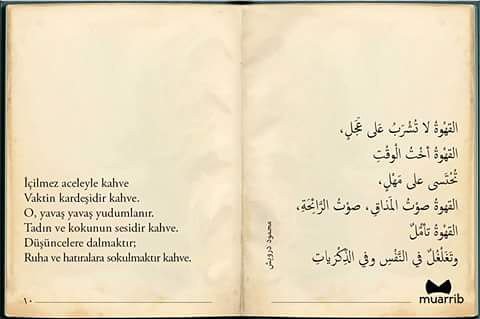 İçilmez aceleyle kahve
Vaktin kardeşidir kahve.
O, yavaş yavaş yudumlanır.
Tadın ve kokunun sesidir kahve.
Düşüncelere dalmaktır;
Ruha ve hatıralara sokulmaktır kahve.
١٠
القهْوةُ لا تُشْرَبُ عَلى عَجَلٍ،
القهْوةُ أخْتُ الْوقْتِ
تُحْتَسى على مَهْلٍ،
القهوةُ صوْتُ المَذاقِ، صوْتُ الرَّائِحَةِ،
القهْوة تأمُّلٌ
وتَغَلْغُلٌ في النَّفْسِ وفي الذِّكْرَياتِ
محمود درويش
muarrib